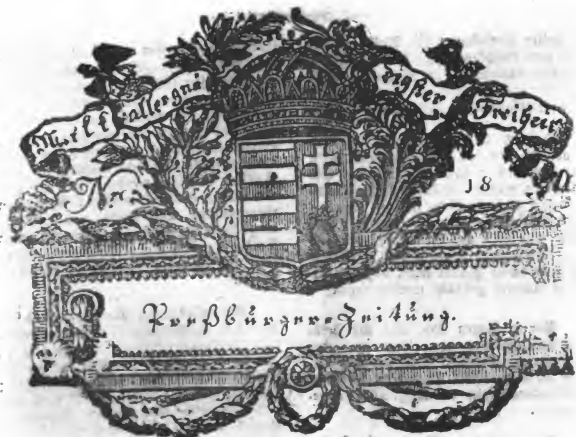 Mit k k allergnä digster Freiheit
Nr. 18
Preßburger-Zeitung.